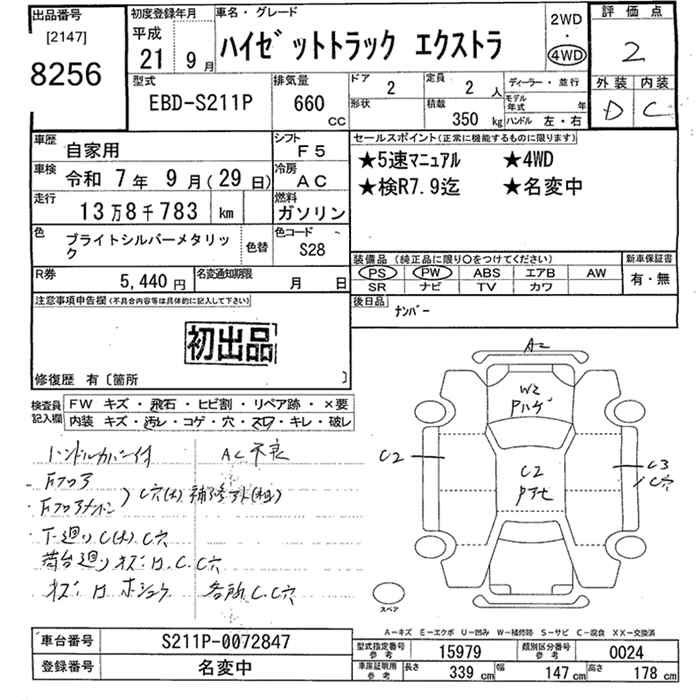 出品番号
[2147]
8256
初度登録年月
平成
21 年 9 月
車名・グレード
ハイゼットトラック エクストラ
2WD
・
4WD
評価点
2
外装 内装
D C
型式
EBD-S211P
排気量
660
CC
ドア
2
形状
定員
2 人
積載
350 kg
ディーラー・並行
モデル年式 年
ハンドル 左・右
車歴
自家用
シフト
F5
車検
令和 7 年 9 月(29 日)
冷房
AC
走行
13万8千783 km
燃料
ガソリン
色
ブライトシルバーメタリック
色替
色コード
S28
R券
5,440 円
名変通知期限
月 日
セールスポイント(正常に機能するものに限ります)
★5速マニュアル ★4WD
★検R7.9迄 ★名変中
装備品(純正品に限り〇をつけてください)
PS PW ABS エアB AW
SR ナビ TV カワ
新車保証書
有・無
後日品
ナンバー
注意事項申告欄(不具合内容等は具体的に記入して下さい)
初出品
修復歴 有〔箇所 〕
検査員記入欄
FW キズ・飛石・ヒビ割・リペア跡・×要
内装 キズ・汚レ・コゲ・穴・スレ・キレ・破レ
ハンドルカバー付 AC不良
Fフロア
Fフロアメンバー 〉C穴(大)補修アト(粗)
下廻りC(大)C穴
荷台廻りキズ凹、C、C穴
キズ 凹 ホシュウ 各所C、C穴
A2
W2
Pハゲ
C2
C2
Pアセ
C3
C穴
スペア
A-キズ E-エクボ U-凹み W-補修跡 S-サビ C-腐食 XX-交換済
車台番号
S211P-0072847
登録番号
名変中
型式指定番号
参考
15979
類別区分番号
参考
0024
車庫証明用
参考
長さ 339 cm 幅 147 cm 高さ 178 cm